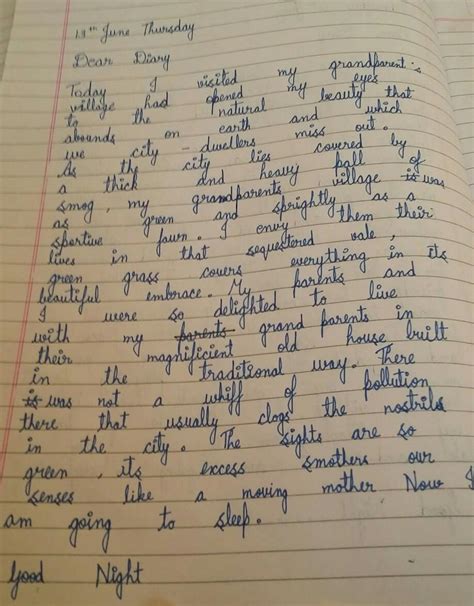 13th June Thursday
Dear Diary
Today I visited my grandparent's
village had opened my eyes
to the natural beauty that
abounds on earth and which
we city - dwellers miss out.
As the city lies covered by
a thick and heavy pall of
smog, my grandparents village is was
as green and sprightly as a
spertive fawn. I envy them their
lives in that sequestered vale,
green grass covers everything in its
beautiful embrace. My parents and
I were so delighted to live
with my parents grand parents in
their magnificient old house built
in the traditional way. There
is was not a whiff of pollution
there that usually clogs the nostrils
in the city. The sights are so
green, its excess smothers our
senses like a moving mother Now I
am going to sleep.
Good Night